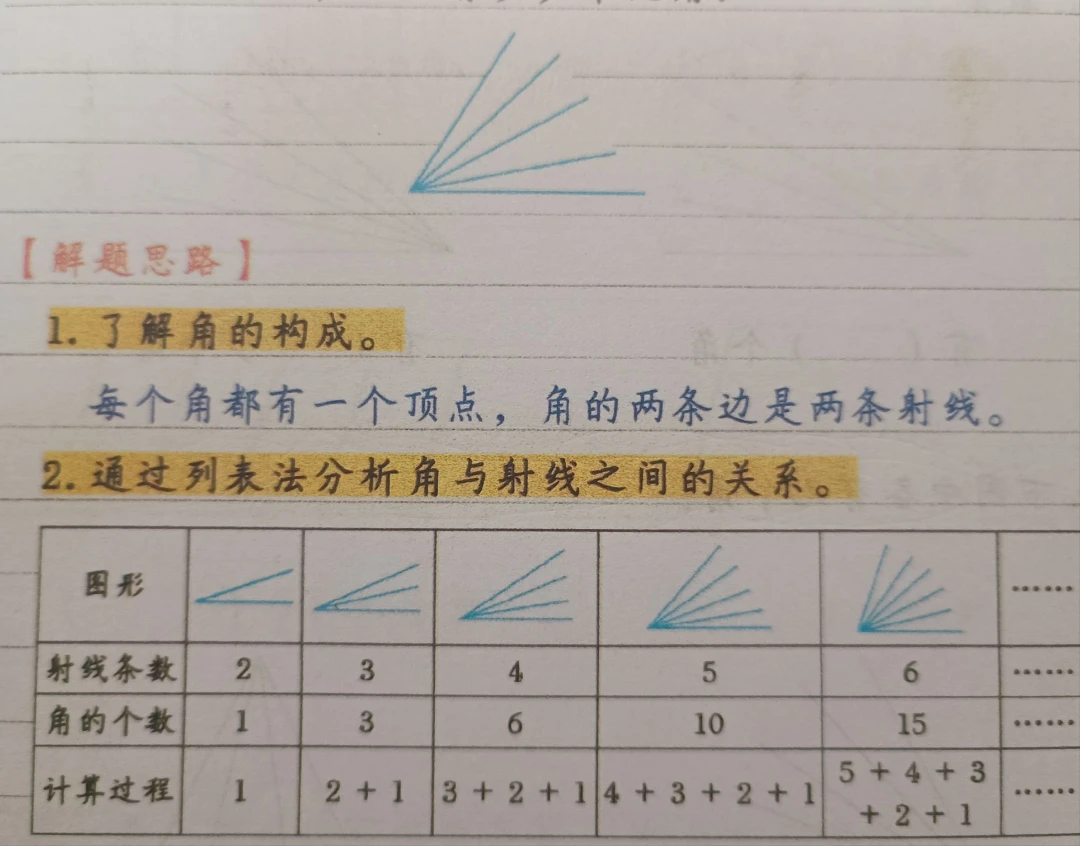 【解题思路】
1. 了解角的构成。
每个角都有一个顶点，角的两条边是两条射线。
2. 通过列表法分析角与射线之间的关系。
图形 ……
射线条数 2 3 4 5 6 ……
角的个数 1 3 6 10 15 ……
计算过程 1 2 + 1 3 + 2 + 1 4 + 3 + 2 + 1 5 + 4 + 3 + 2 + 1 ……